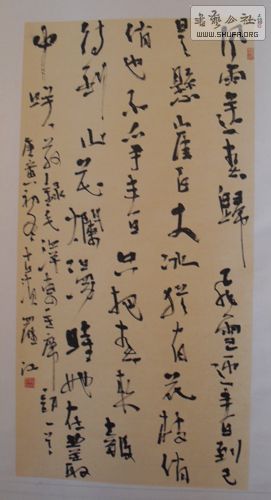 風雨送春歸飛雪迎春到已
是懸崖百丈冰猶有花枝俏
俏也不爭春只把春來報
待到山花爛漫時她在叢
中笑 敬錄毛澤東主席詞一首
庚寅初冬
江
書藝公社
WWW.SHUFA.ORG